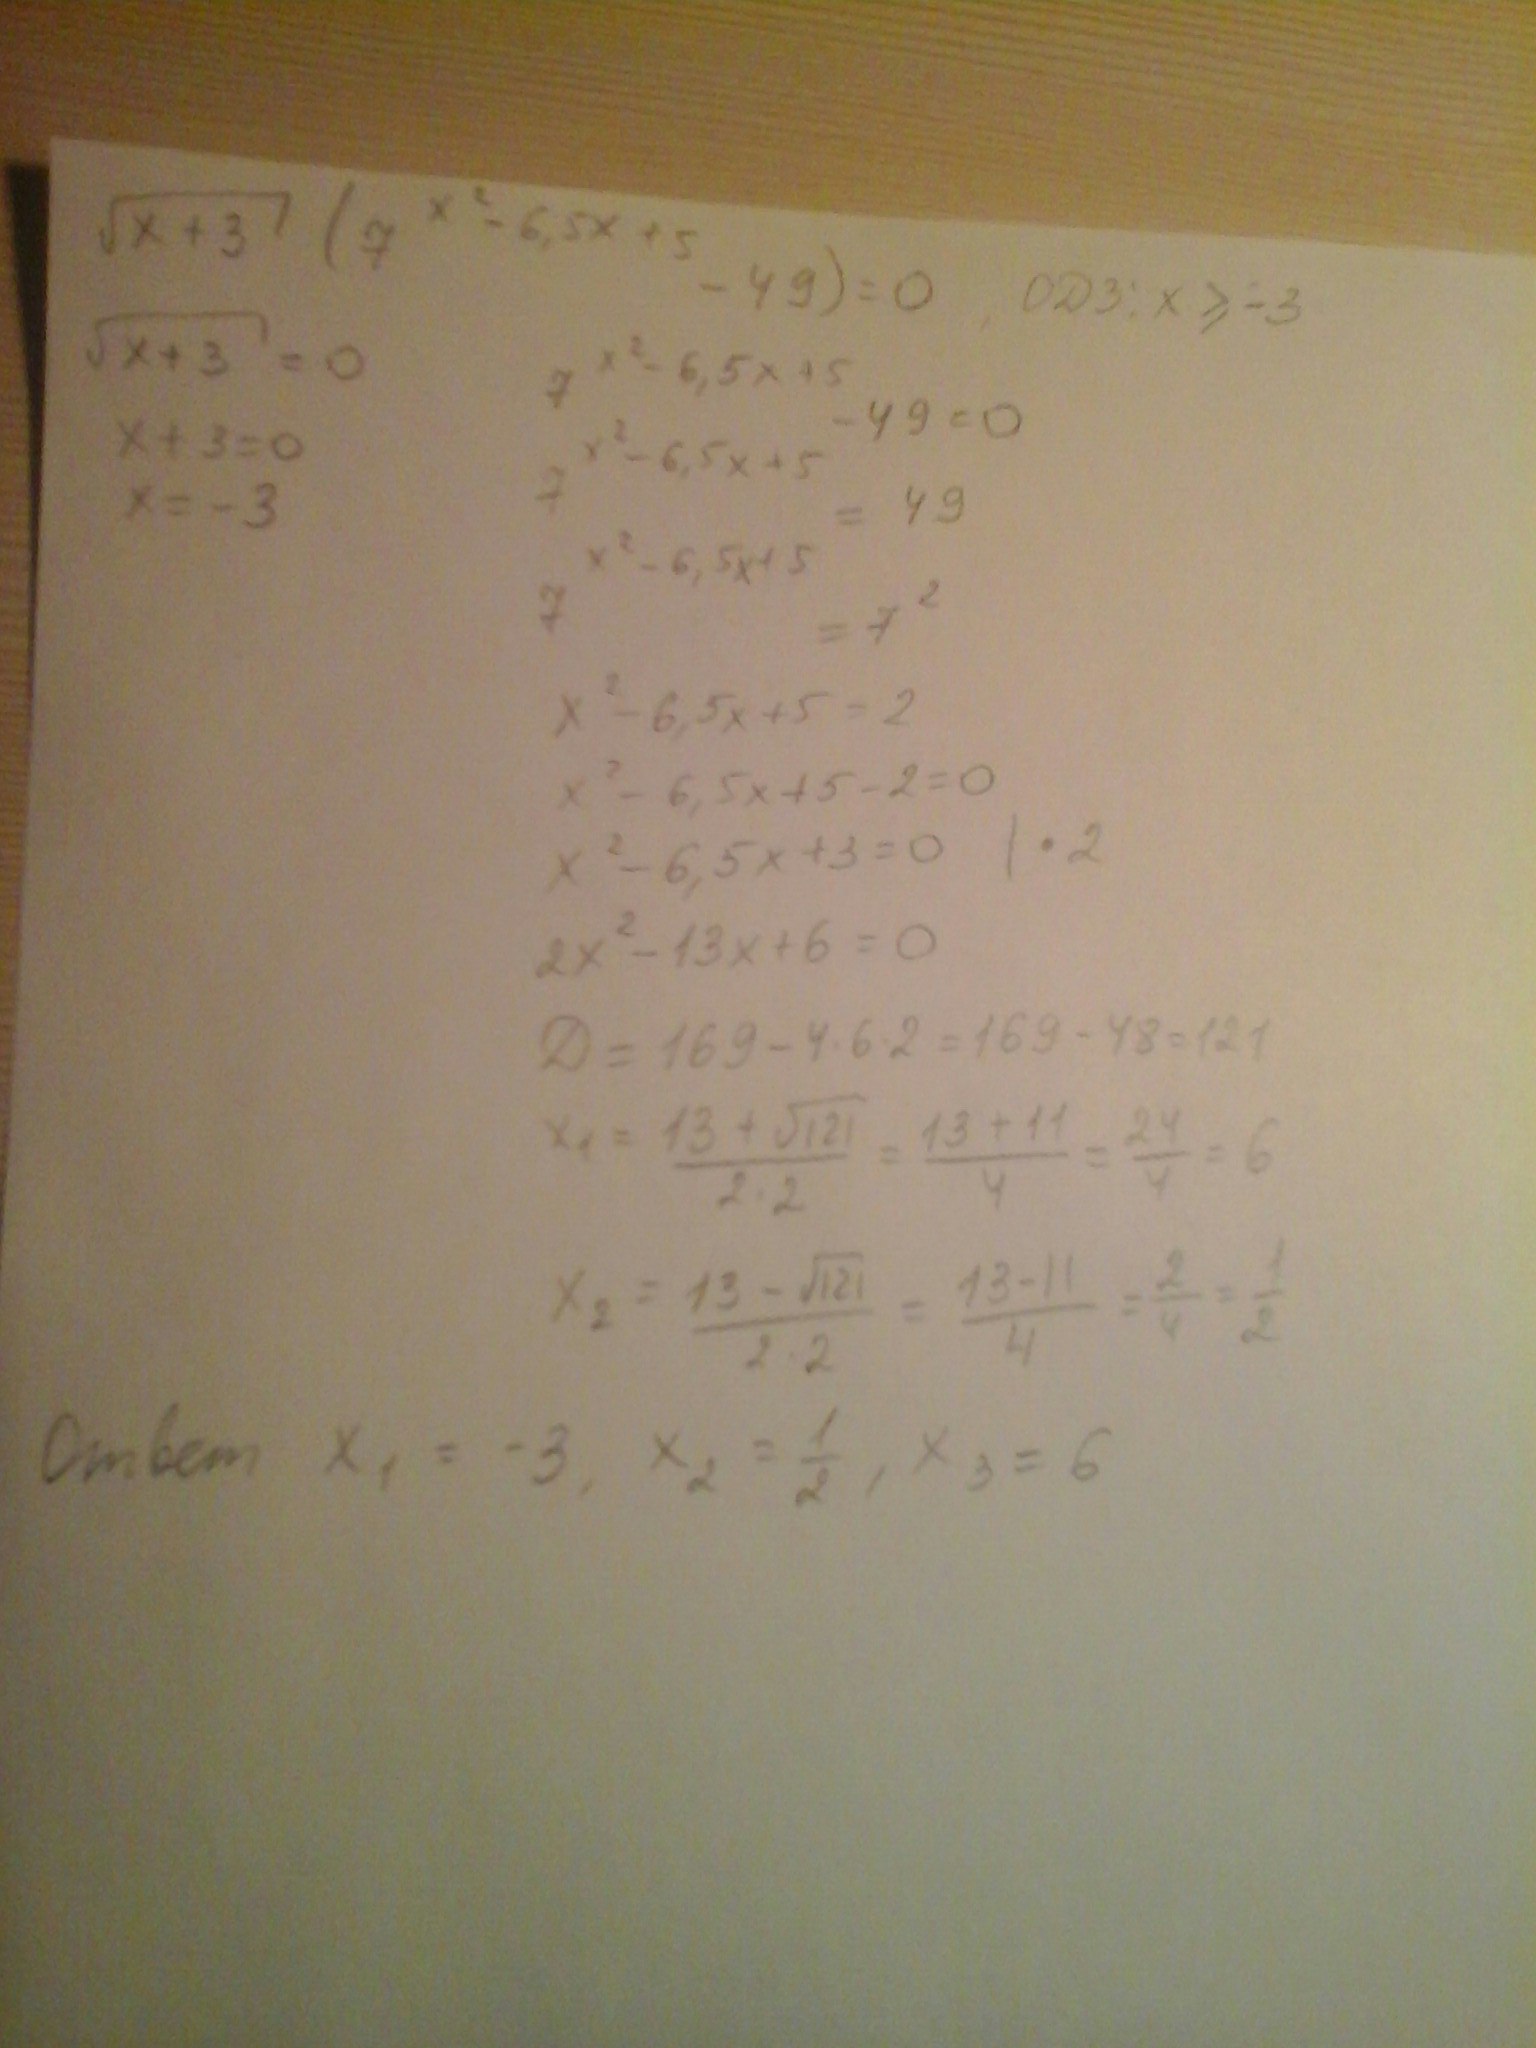 √x+3 (7^x²-6,5x+5 - 49) = 0, ОДЗ: x ⩾ -3
√x+3 = 0
x+3=0
x=-3
7^x²-6,5x+5 - 49 = 0
7^x²-6,5x+5 = 49
7^x²-6,5x+5 = 7²
x²-6,5x+5=2
x²-6,5x+5-2=0
x²-6,5x+3=0 | · 2
2x²-13x+6=0
D = 169-4·6·2=169-48=121
x₁ = (13+√121)/(2·2) = (13+11)/4 = 24/4 = 6
x₂ = (13-√121)/(2·2) = (13-11)/4 = 2/4 = 1/2
Ответ x₁ = -3, x₂ = 1/2, x₃ = 6